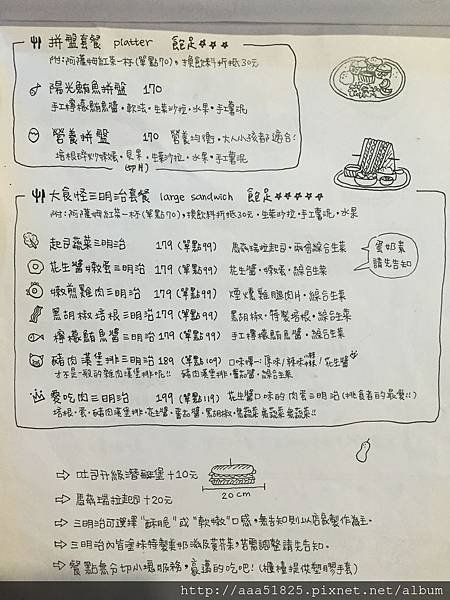 拼盤套餐 platter 飽足☆☆☆
附:阿薩姆紅茶一杯(單點70),換飲料折抵30元
陽光鮪魚拼盤 170
手工檸檬鮪魚醬・軟法・生菜沙拉・水果・手工薯泥
營養拼盤 170 營養均衡,大人小孩都適合!
培根碎炒嫩蛋・貝果・生菜沙拉・水果・手工薯泥
大食怪三明治套餐 large sandwich 飽足☆☆☆☆☆
附:阿薩姆紅茶一杯(單點70),換飲料折抵30元・生菜沙拉・手工薯泥・水果
起司蔬菜三明治 179 (單點99) 馬茲瑞拉起司・兩倍綜合生菜
蛋奶素
請先告知
花生醬嫩蛋三明治 179 (單點99) 花生醬・嫩蛋・綜合生菜
嫩煎雞肉三明治 179 (單點99) 煙燻雞腿肉片・綜合生菜
黑胡椒培根三明治 179 (單點99) 黑胡椒・特製培根・綜合生菜
檸檬鮪魚醬三明治 179 (單點99) 手工檸檬鮪魚醬・綜合生菜
豬肉漢堡排三明治 189 (單點109) 口味擇一:原味/辣味/花生醬
才不是一般的雜肉漢堡排呢!! 豬肉漢堡排・蕃茄醬・綜合生菜
愛吃肉三明治 199 (單點119) 花生醬口味的肉蛋三明治(挑食者的最愛!!)
培根・蛋・豬肉漢堡排・花生醬・蕃茄醬・黑胡椒・無蔬菜無蔬菜無蔬菜!!
⇨ 吐司升級潛艇堡+10元
20cm
⇨ 馬茲瑞拉起司+20元
⇨ 三明治可選擇"酥脆"或"軟嫩"口感,無告知則以店家製作為主。
⇨ 三明治內皆塗抹特製美奶滋及黃芥末,若需調整請先告知。
⇨ 餐點無分切小塊服務,豪邁的吃吧!(櫃檯提供塑膠手套)
http://aaa51825.pixnet.net/album